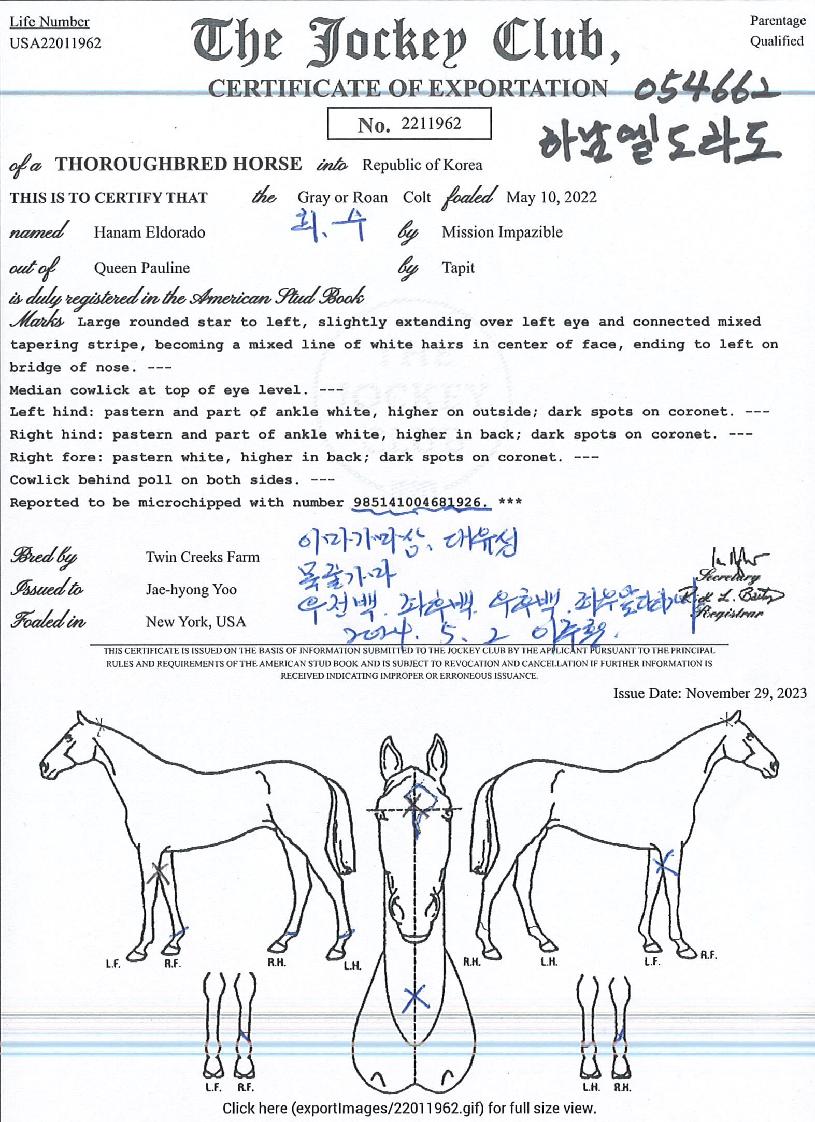 Life Number
USA22011962
The Jockey Club,
Parentage
Qualified
CERTIFICATE OF EXPORTATION
054662
No. 2211962
하남엘도라도
of a THOROUGHBRED HORSE into Republic of Korea
THIS IS TO CERTIFY THAT the Gray or Roan Colt foaled May 10, 2022
회. 수
named Hanam Eldorado by Mission Impazible
out of Queen Pauline by Tapit
is duly registered in the American Stud Book
Marks Large rounded star to left, slightly extending over left eye and connected mixed
tapering stripe, becoming a mixed line of white hairs in center of face, ending to left on
bridge of nose. ---
Median cowlick at top of eye level. ---
Left hind: pastern and part of ankle white, higher on outside; dark spots on coronet. ---
Right hind: pastern and part of ankle white, higher in back; dark spots on coronet. ---
Right fore: pastern white, higher in back; dark spots on coronet. ---
Cowlick behind poll on both sides. ---
Reported to be microchipped with number 985141004681926. ***
THE JOCKEY
이마가마상. 대유성
Bred by Twin Creeks Farm
목줄가마
Secretary
Issued to Jae-hyong Yoo
우전백. 좌후백. 우후백. 좌우앞다리가마
Registrar
Foaled in New York, USA
2024. 5. 2
THIS CERTIFICATE IS ISSUED ON THE BASIS OF INFORMATION SUBMITTED TO THE JOCKEY CLUB BY THE APPLICANT PURSUANT TO THE PRINCIPAL
RULES AND REQUIREMENTS OF THE AMERICAN STUD BOOK AND IS SUBJECT TO REVOCATION AND CANCELLATION IF FURTHER INFORMATION IS
RECEIVED INDICATING IMPROPER OR ERRONEOUS ISSUANCE.
Issue Date: November 29, 2023
L.F. R.F. R.H. L.H. R.H. L.H. L.F. R.F.
L.F. R.F. L.H. R.H.
Click here (exportImages/22011962.gif) for full size view.